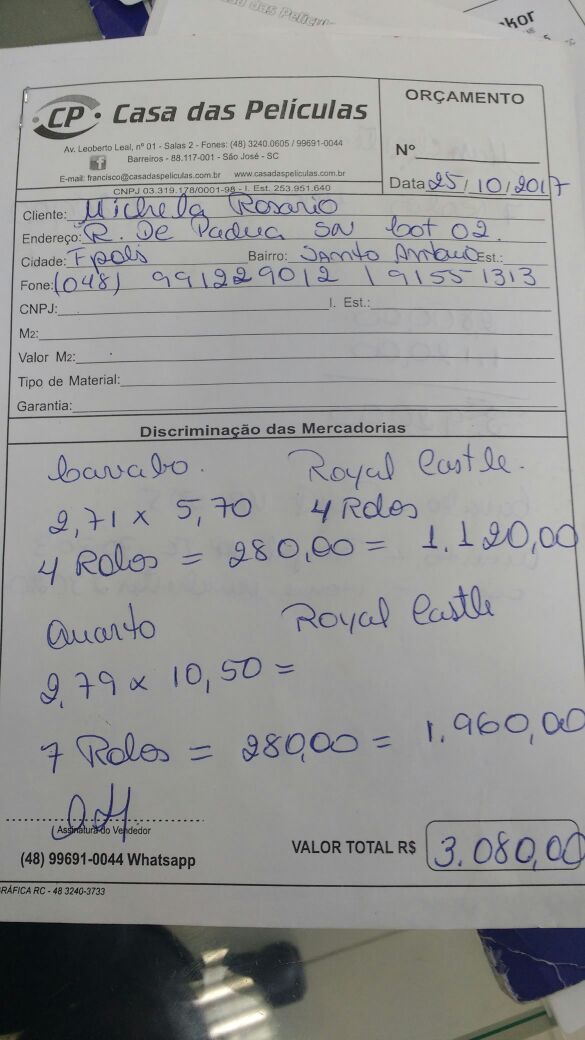 Casa das Películ
kor
CP Casa das Películas
Av. Leoberto Leal, nº 01 - Salas 2 - Fones: (48) 3240.0605 / 99691-0044
Barreiros - 88.117-001 - São José - SC
E-mail: francisco@casadaspeliculas.com.br www.casadaspeliculas.com.br
CNPJ 03.319.178/0001-98 - I. Est. 253.951.640
ORÇAMENTO
Nº
Data 25/10/2017
Cliente: Michela Rosario
Endereço: R. De Padua SN lot 02.
Cidade: Fpolis Bairro: Santo Antonio Est.:
Fone: (048) 991229012 / 91551313
CNPJ: I. Est.:
M2:
Valor M2:
Tipo de Material:
Garantia:
Discriminação das Mercadorias
Lavabo. Royal Castle.
2,71 x 5,70 4 Rolos
4 Rolos = 280,00 = 1.120,00
Quarto Royal Castle
2,79 x 10,50 =
7 Rolos = 280,00 = 1.960,00
Assinatura do Vendedor
(48) 99691-0044 Whatsapp
VALOR TOTAL R$ 3.080,00
GRÁFICA RC - 48 3240-3733